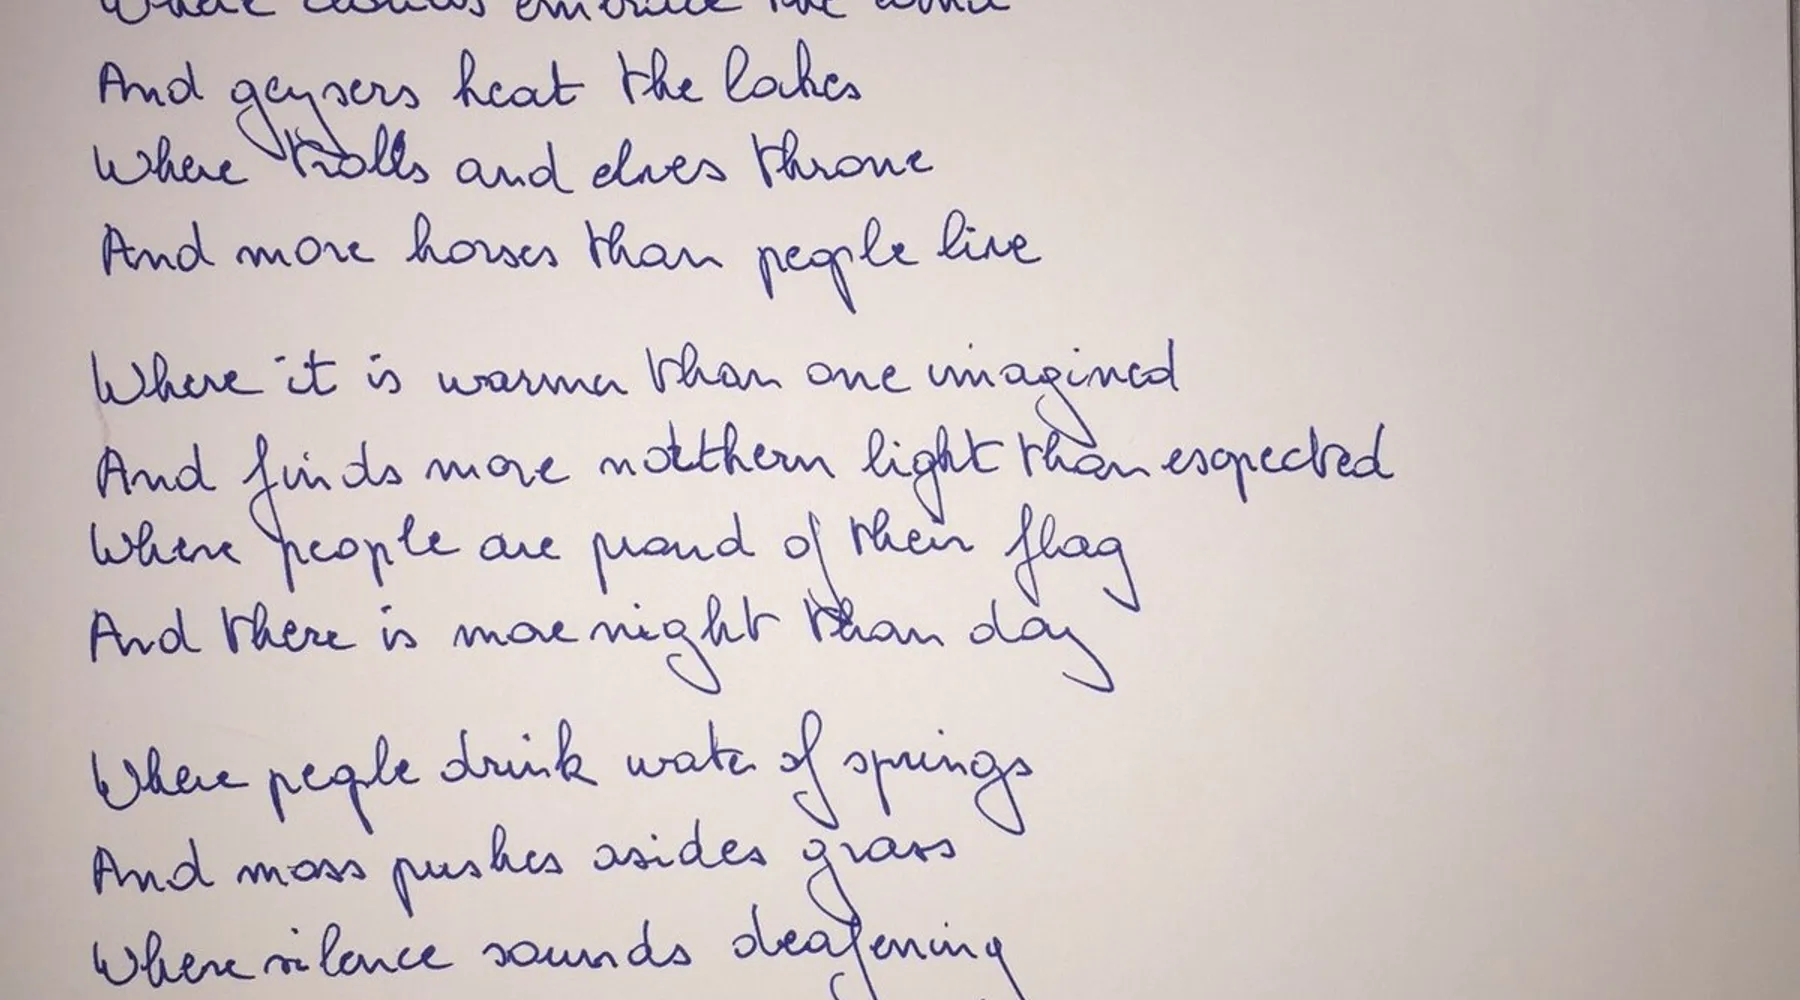 Where embrace the
And geysers heat the lakes
Where trolls and elves throne
And more horses than people live
Where it is warmer than one imagined
And finds more northern light than expected
Where people are proud of their flag
And there is more night than day
Where people drink water of springs
And moss pushes asides grass
Where silence sounds deafening